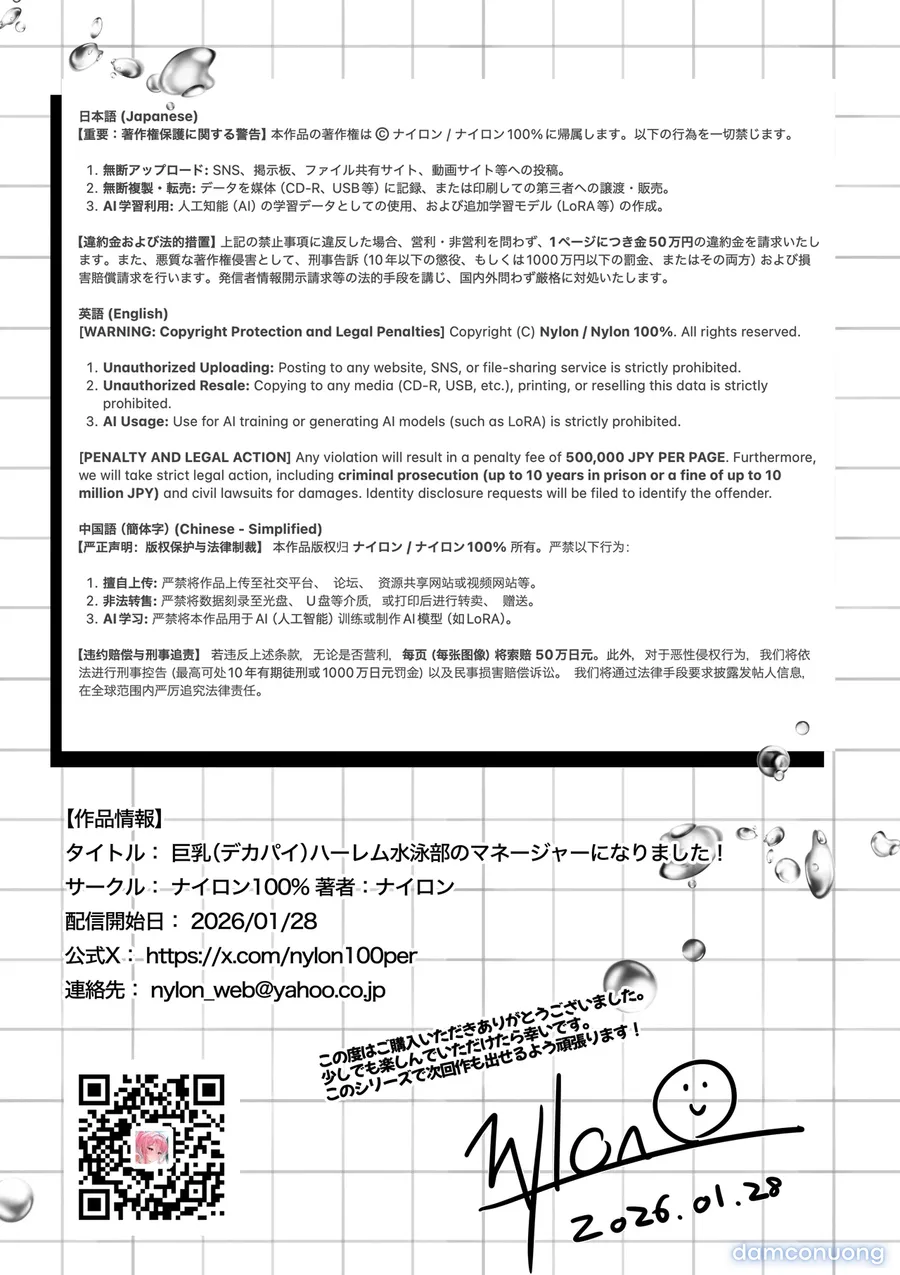 日本語 (Japanese)
【重要：著作権保護に関する警告】本作品の著作権は © ナイロン / ナイロン100%に帰属します。以下の行為を一切禁じます。
1. 無断アップロード: SNS、掲示板、ファイル共有サイト、動画サイト等への投稿。
2. 無断複製・転売: データを媒体（CD-R、USB等）に記録、または印刷しての第三者への譲渡・販売。
3. AI学習利用: 人工知能（AI）の学習データとしての使用、および追加学習モデル（LoRA等）の作成。
【違約金および法的措置】上記の禁止事項に違反した場合、営利・非営利を問わず、1ページにつき金50万円の違約金を請求いたし
ます。また、悪質な著作権侵害として、刑事告訴（10年以下の懲役、もしくは1000万円以下の罰金、またはその両方）および損
害賠償請求を行います。発信者情報開示請求等の法的手段を講じ、国内外問わず厳格に対処いたします。
英語 (English)
[WARNING: Copyright Protection and Legal Penalties] Copyright (C) Nylon / Nylon 100%. All rights reserved.
1. Unauthorized Uploading: Posting to any website, SNS, or file-sharing service is strictly prohibited.
2. Unauthorized Resale: Copying to any media (CD-R, USB, etc.), printing, or reselling this data is strictly
prohibited.
3. AI Usage: Use for AI training or generating AI models (such as LoRA) is strictly prohibited.
[PENALTY AND LEGAL ACTION] Any violation will result in a penalty fee of 500,000 JPY PER PAGE. Furthermore,
we will take strict legal action, including criminal prosecution (up to 10 years in prison or a fine of up to 10
million JPY) and civil lawsuits for damages. Identity disclosure requests will be filed to identify the offender.
中国語（簡体字）(Chinese - Simplified)
【严正声明：版权保护与法律制裁】 本作品版权归 ナイロン / ナイロン100% 所有。严禁以下行为：
1. 擅自上传: 严禁将作品上传至社交平台、 论坛、 资源共享网站或视频网站等。
2. 非法转售: 严禁将数据刻录至光盘、 U盘等介质，或打印后进行转卖、 赠送。
3. AI学习: 严禁将本作品用于AI（人工智能）训练或制作AI模型（如LoRA）。
【违约赔偿与刑事追责】 若违反上述条款，无论是否营利，每页 (每张图像) 将索赔 50万日元。此外，对于恶性侵权行为，我们将依
法进行刑事控告 (最高可处10年有期徒刑或1000万日元罚金) 以及民事损害赔偿诉讼。 我们将通过法律手段要求披露发帖人信息，
在全球范围内严厉追究法律责任。
【作品情報】
タイトル： 巨乳（デカパイ）ハーレム水泳部のマネージャーになりました！
サークル： ナイロン100% 著者：ナイロン
配信開始日： 2026/01/28
公式X： https://x.com/nylon100per
連絡先： nylon_web@yahoo.co.jp
この度はご購入いただきありがとうございました。
少しでも楽しんでいただけたら幸いです。
このシリーズで次回作も出せるよう頑張ります！
Nylon
2026.01.28
damconuong